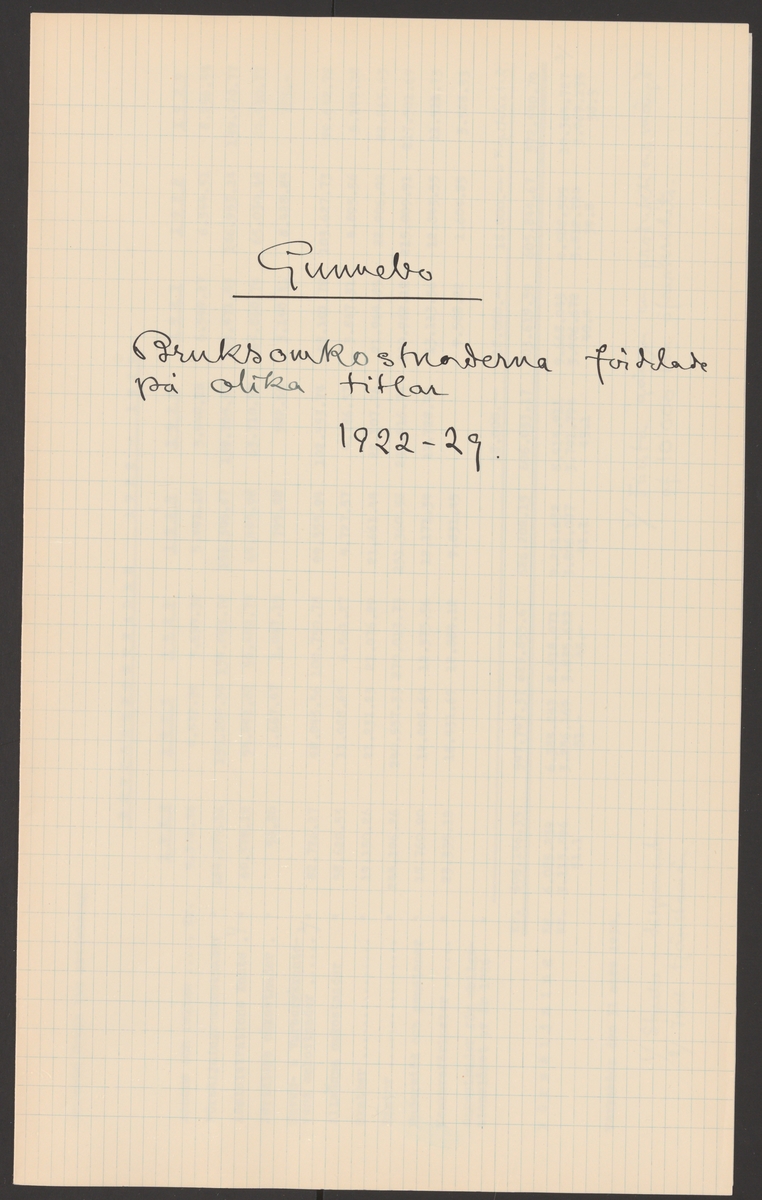 Gunnebo
Bruksomkostnaderna fördelade
på olika titlar
1922-29.